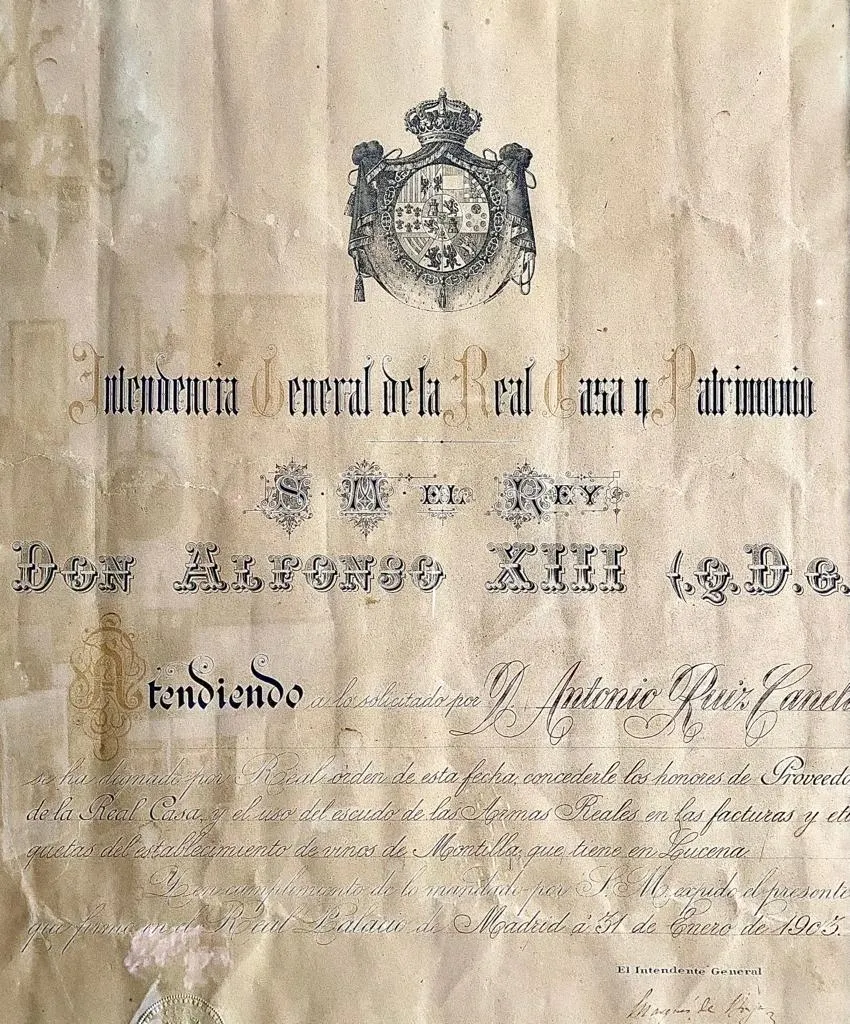 Intendencia General de la Real Casa y Patrimonio
S. M. EL REY
DON ALFONSO XIII (q.D.G.
Atendiendo a lo solicitado por D. Antonio Ruiz Canel
se ha dignado por Real orden de esta fecha, concederle los honores de Proveedo
de la Real Casa, y el uso del escudo de las Armas Reales en las facturas y eti
quetas del establecimiento de vinos de Montilla, que tiene en Lucena.
Y en cumplimiento de lo mandado por S. M. expido el presente
que firmo en el Real Palacio de Madrid á 31 de Enero de 1903.
El Intendente General
Marqués de